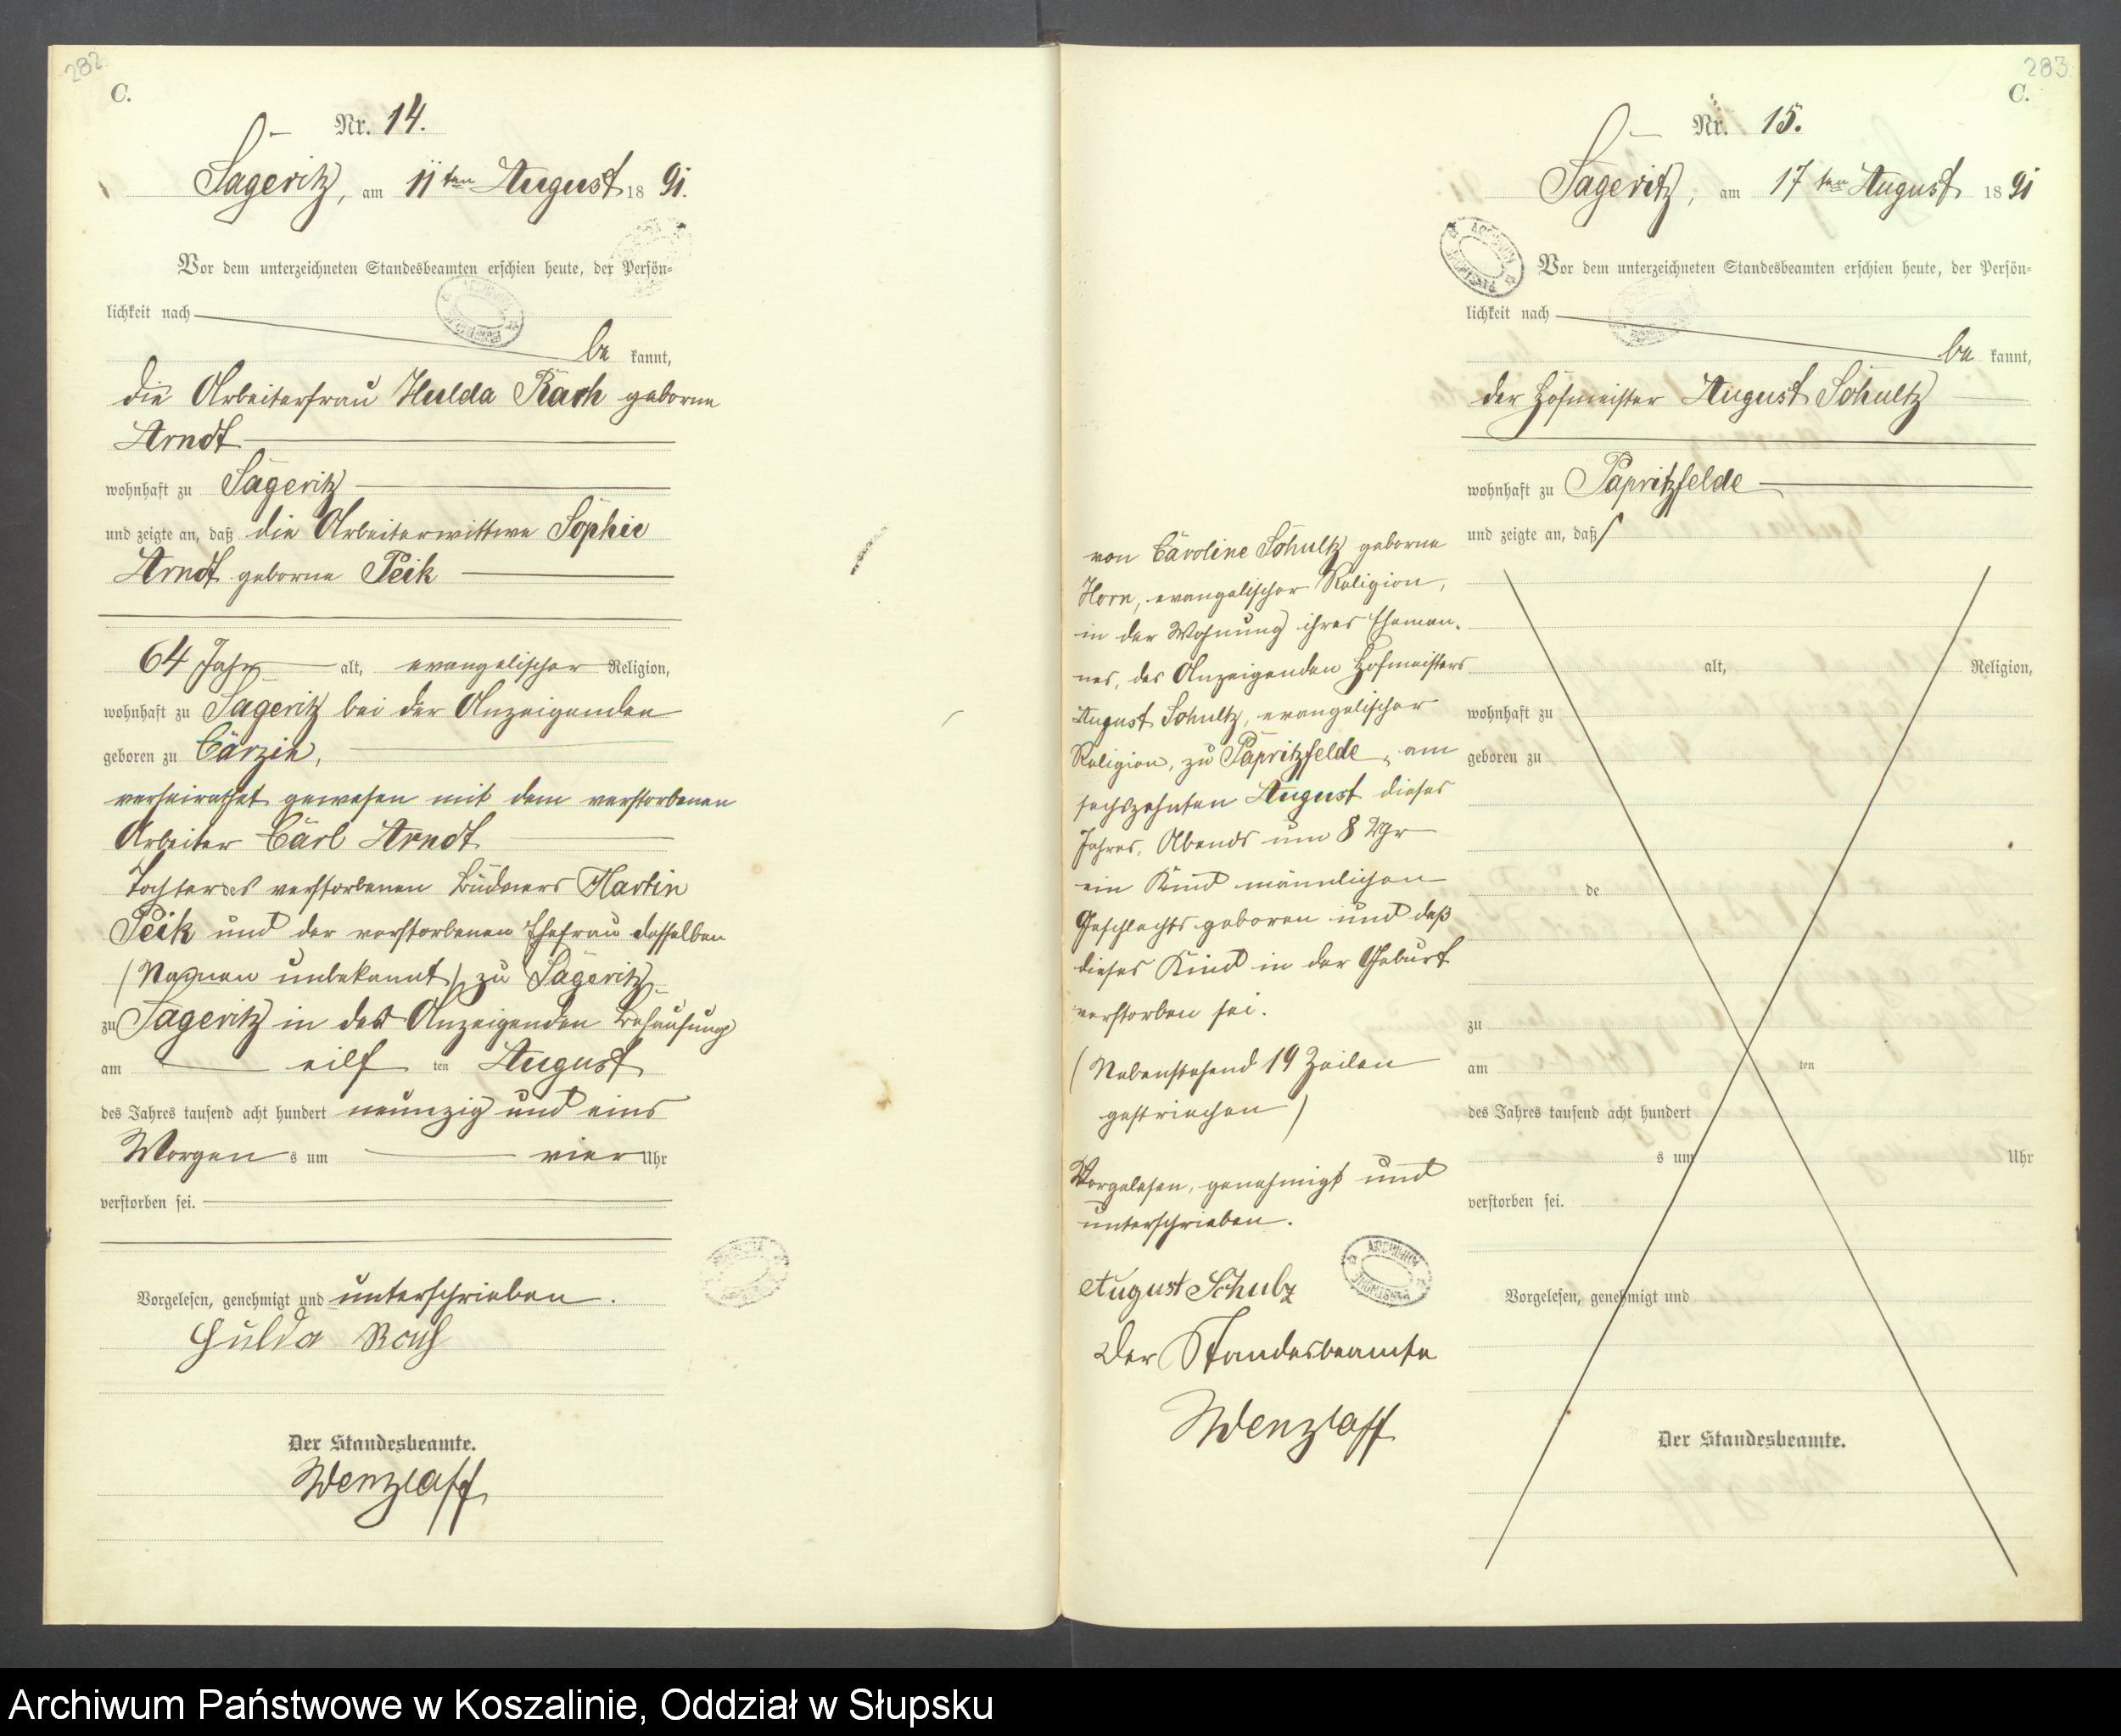 282.
C.
Nr. 14.
Sageritz, am 11ten August 1891.
Vor dem unterzeichneten Standesbeamten erschien heute, der Persön-
lichkeit nach
be kannt,
die Arbeiterfrau Hulda Rach geborne
Arndt
wohnhaft zu Sageritz
und zeigte an, daß die Arbeiterwittwe Sophie
Arndt geborne Peik
64 Jahr alt, evangelischer Religion,
wohnhaft zu Sageritz bei der Anzeigenden
geboren zu Carzin,
verheirathet gewesen mit dem verstorbenen
Arbeiter Carl Arndt
Tochter des verstorbenen Büdners Martin
Peik und der verstorbenen Ehefrau desselben
(Namen unbekannt) zu Sageritz
zu Sageritz in der Anzeigenden Behausung
am eilf ten August
des Jahres tausend acht hundert neunzig und eins
Morgen s um vier Uhr
verstorben sei.
Vorgelesen, genehmigt und unterschrieben.
Hulda Rach
Der Standesbeamte.
Wenzlaff
283.
C.
Nr. 15.
Sageritz, am 17ten August 1891
Vor dem unterzeichneten Standesbeamten erschien heute, der Persön-
lichkeit nach
be kannt,
der Hofmeister August Schultz
wohnhaft zu Papritzfelde
und zeigte an, daß
von Caroline Schultz geborne
Horn, evangelischer Religion,
in der Wohnung ihres Eheman-
nes, des Anzeigenden Hofmeisters
August Schultz, evangelischer
Religion, zu Papritzfelde, am
sechszehnten August dieses
Jahres, Abends um 8 Uhr
ein Kind männlichen
Geschlechts geboren und daß
dieses Kind in der Geburt
verstorben sei.
(Nebenstehend 19 Zeilen
gestrichen)
Vorgelesen, genehmigt und
unterschrieben.
August Schulz
Der Standesbeamte
Wenzlaff
alt, Religion,
wohnhaft zu
geboren zu
de
zu
am ten
des Jahres tausend acht hundert
s um Uhr
verstorben sei.
Vorgelesen, genehmigt und
Der Standesbeamte.
Archiwum Państwowe w Koszalinie, Oddział w Słupsku